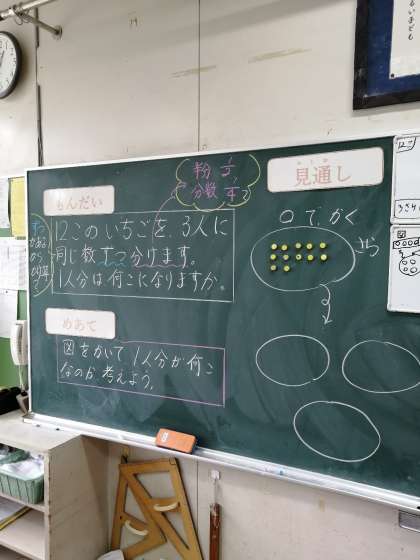 もんだい
12このいちごを、3人に
同じ数ずつ分けます。
1人分は何こになりますか。
半分 1/2
分数 1/4
めあて
図をかいて1人分が何こ
なのか考えよう。
見通し
○で、かく
さら
12こ